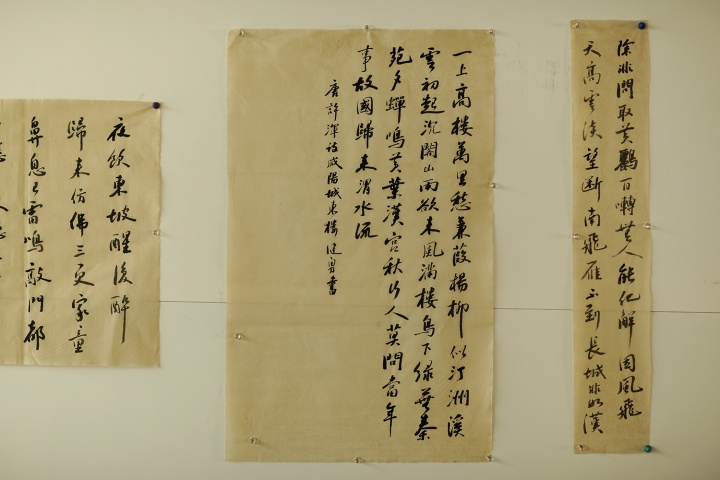 除非問取黃鸝百囀無人能化解因風飛
天高雲淡望斷南飛雁不到長城非好漢
一上高樓萬里愁蒹葭楊柳似汀洲溪
雲初起沉閣山雨欲來風滿樓鳥下綠蕪秦
苑夕蟬鳴黃葉漢宮秋行人莫問當年
事故國歸來渭水流
唐許渾詩咸陽城東樓 健勇書
夜飲東坡醒復醉
歸來仿佛三更家童
鼻息已雷鳴敲門都